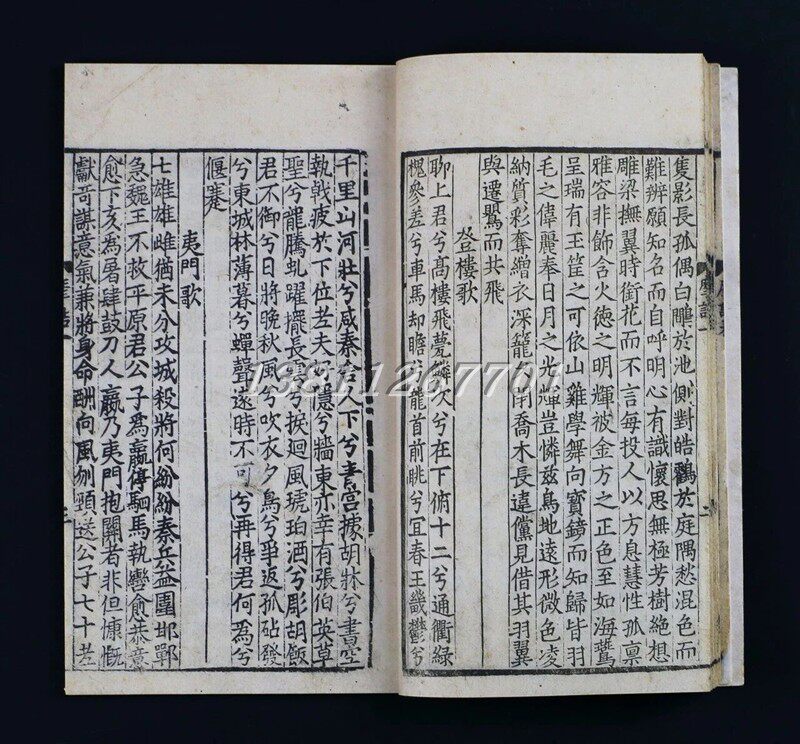 隻影長孤偶白鷴於池側對皓鶴於庭隅愁混色而
難辨願知名而自呼明心有識懷思無極芳樹絕想
雕梁撫翼時銜花而不言每投人以方息慧性孤稟
雅容非飾含火德之明輝被金方之正色至如海鷰
呈瑞有玉筐之可依山雞學舞向寶鏡而知歸皆羽
毛之偉麗奉日月之光輝豈憐茲鳥地遠形微色凌
納質彩奪繒衣深籠久閉喬木長違儻見借其羽翼
與遷鸎而共飛
登樓歌
聊上君兮高樓飛甍鱗次兮在下俯十二兮通衢綠
槐參差兮車馬却瞻兮龍首前眺兮宜春王畿鬱兮
千里山河壯兮咸秦舍人下兮青宮據胡牀兮書空
執戟疲於下位老夫好隱兮牆東亦幸有張伯英草
聖兮龍騰虬躍擺長雲兮捩迴風琥珀酒兮彫胡飯
君不御兮日將晚秋風兮吹衣夕鳥兮爭返孤砧發
兮東城林薄暮兮蟬聲遠時不可兮再得君何為兮
偃蹇
夷門歌
七雄雄雌猶未分攻城殺將何紛紛秦兵益圍邯鄲
急魏王不救平原君公子為嬴停駟馬執轡愈恭意
愈下亥為屠肆鼓刀人嬴乃夷門抱關者非但慷慨
獻奇謀意氣兼將身命酬向風刎頸送公子七十老
13811267701